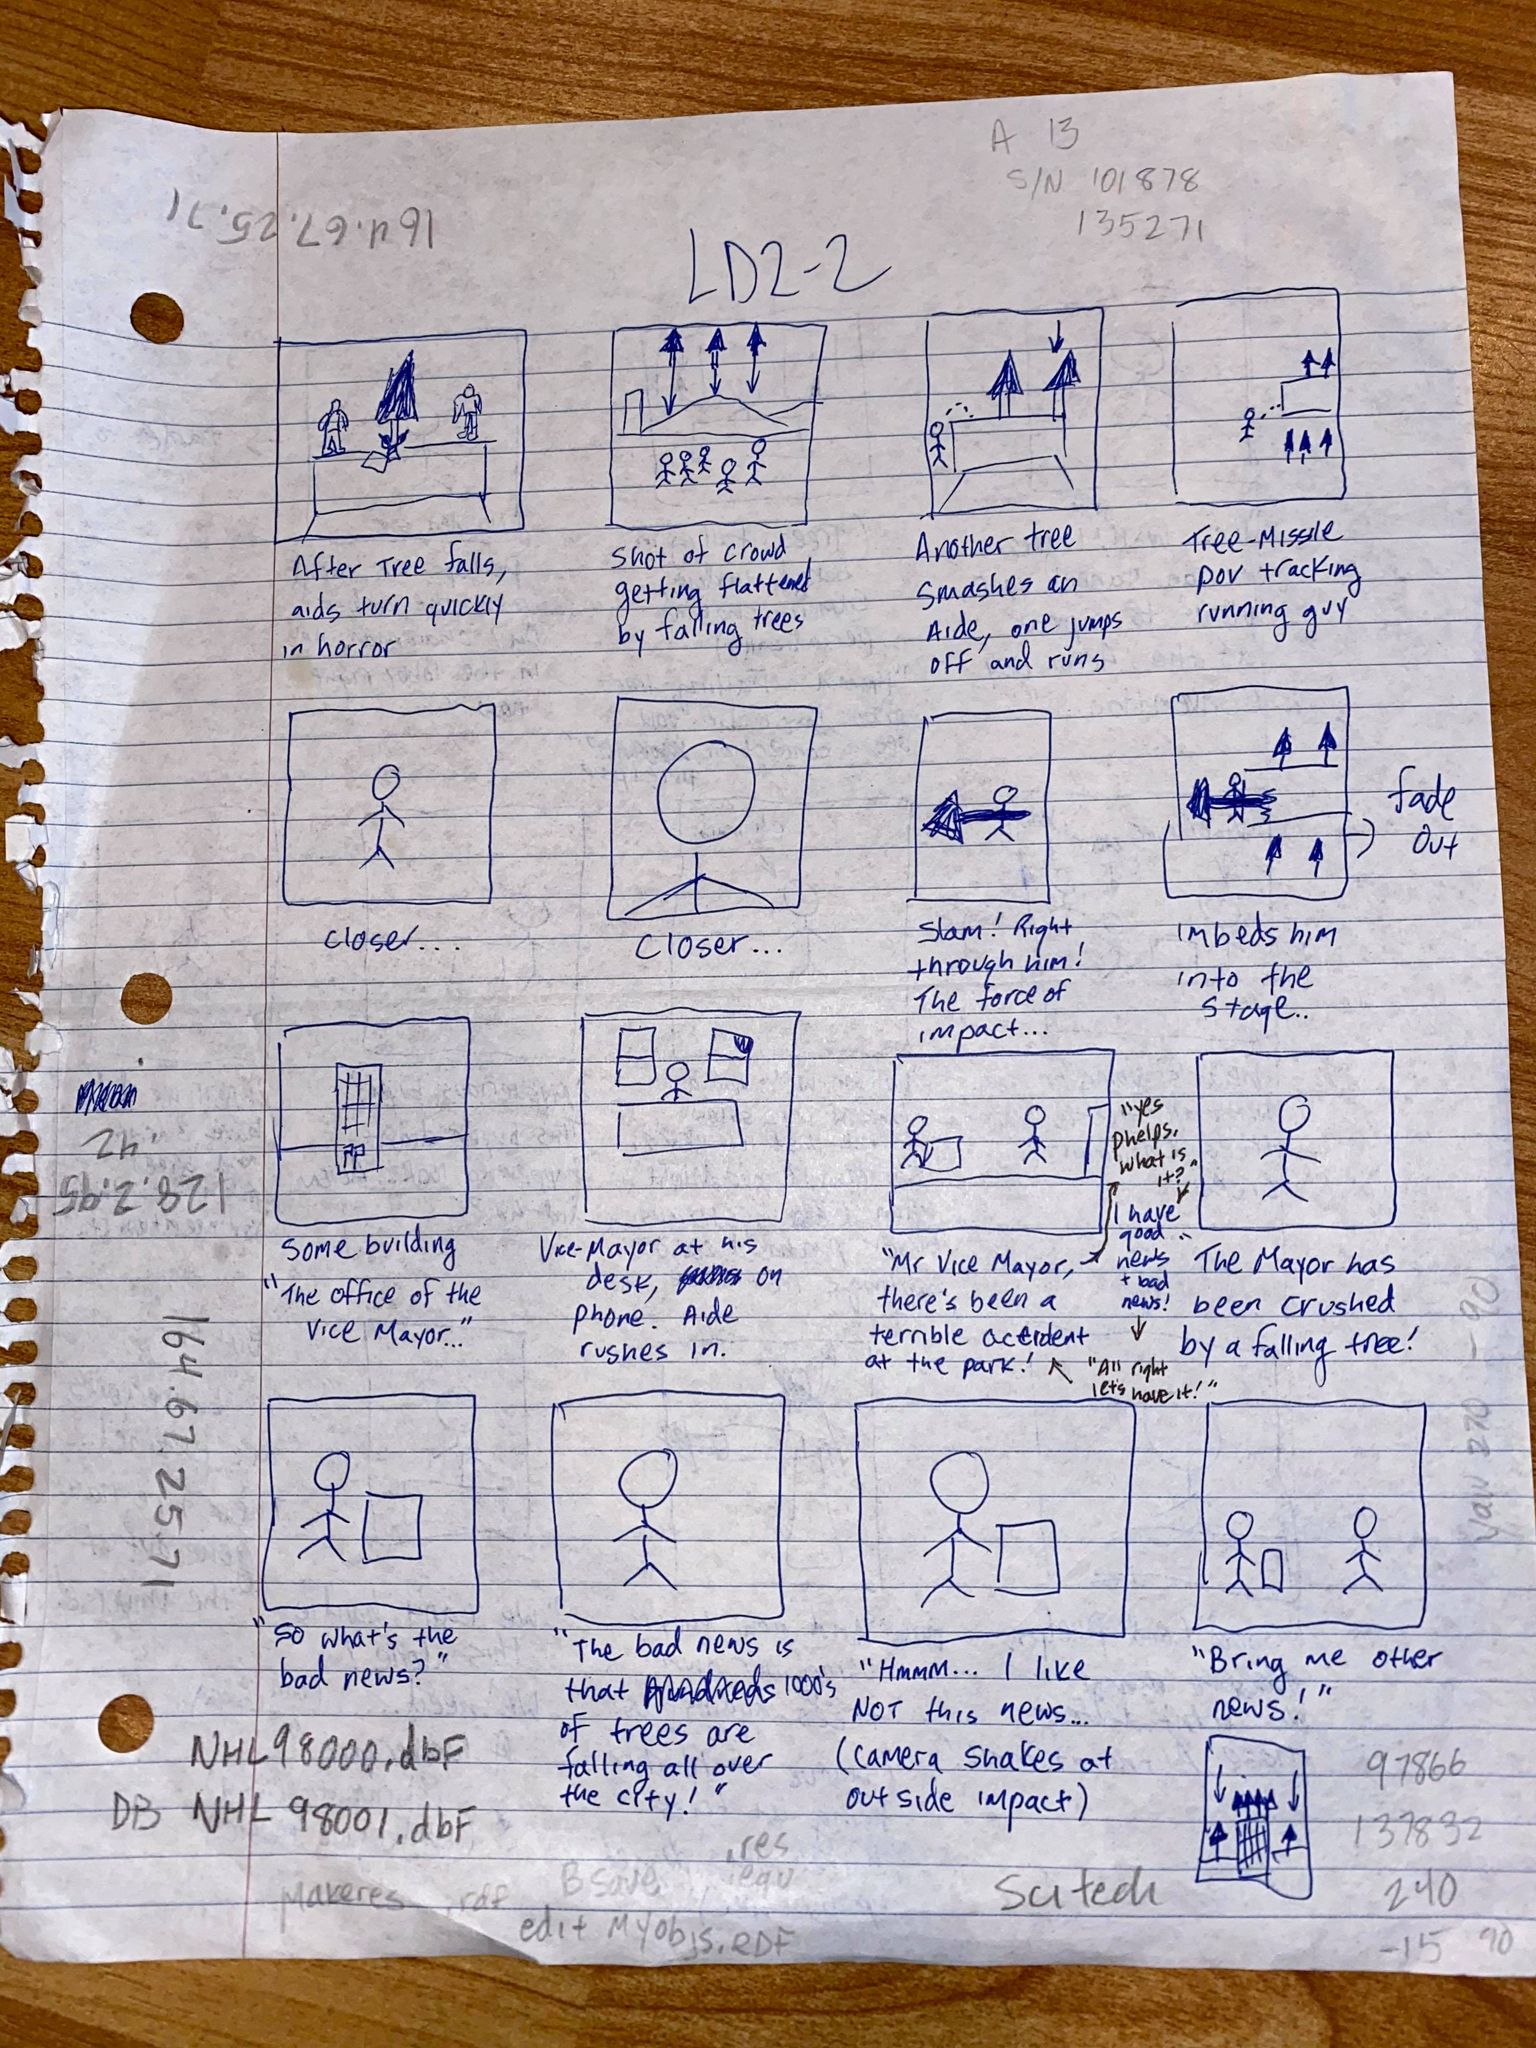 A 13
S/N 101878
135271
164.67.25.71
LD2-2
After Tree falls,
aids turn quickly
in horror
Shot of crowd
getting flattened
by falling trees
Another tree
smashes an
Aide, one jumps
off and runs
Tree-Missile
pov tracking
running guy
closer...
closer...
Slam! Right
through him!
The force of
impact...
imbeds him
into the
stage..
fade
out
some building
"The office of the
Vice Mayor..."
Vice-Mayor at his
desk, on
phone. Aide
rushes in.
"Mr Vice Mayor,
there's been a
terrible accident
at the park!
"yes
phelps,
what is
it?"
I have
good
news
+ bad
news!
"All right
let's have it!"
The Mayor has
been crushed
by a falling tree!
"So what's the
bad news?"
"The bad news is
that 1000's
of trees are
falling all over
the city!"
"Hmmm... I like
NOT this news...
(camera shakes at
outside impact)
"Bring me other
news!"
.42
128.2.95
164.67.25.71
Yaw 270 - 90
NHL98000.dbf
DB NHL 98001.dbf
Makeres .rdf
Bsave
.res
.equ
edit Myobjs.RDF
Scitech
97866
137832
240
-15 90